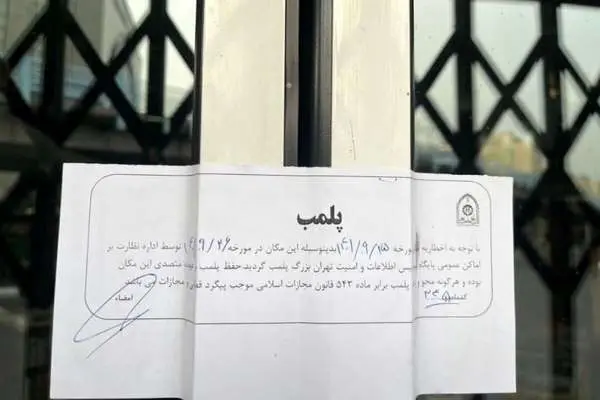 پلمب
با توجه به اخطاریه مورخه ۱۴۰۱/۹/۲۵ بدینوسیله این مکان در مورخه ۱۴۰۱/۹/۲۶ توسط اداره نظارت بر
اماکن عمومی پایگاه پلیس اطلاعات و امنیت تهران بزرگ پلمب گردید حفظ پلمب بعهده متصدی این مکان
بوده و هرگونه محو و پلمب برابر ماده ۵۴۳ قانون مجازات اسلامی موجب پیگرد قانونی مجازات می باشد
امضاء